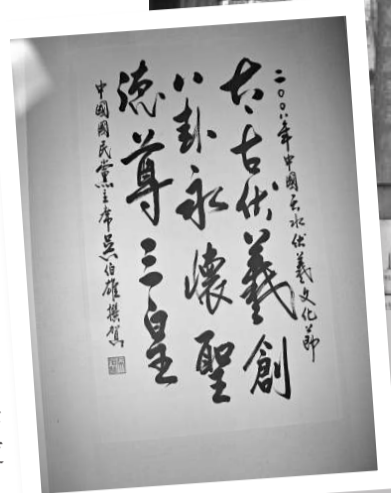 二〇〇八年中國天水伏羲文化節
太古伏羲創
八卦永懷聖
德尊三皇
中國國民黨主席吳伯雄撰賀